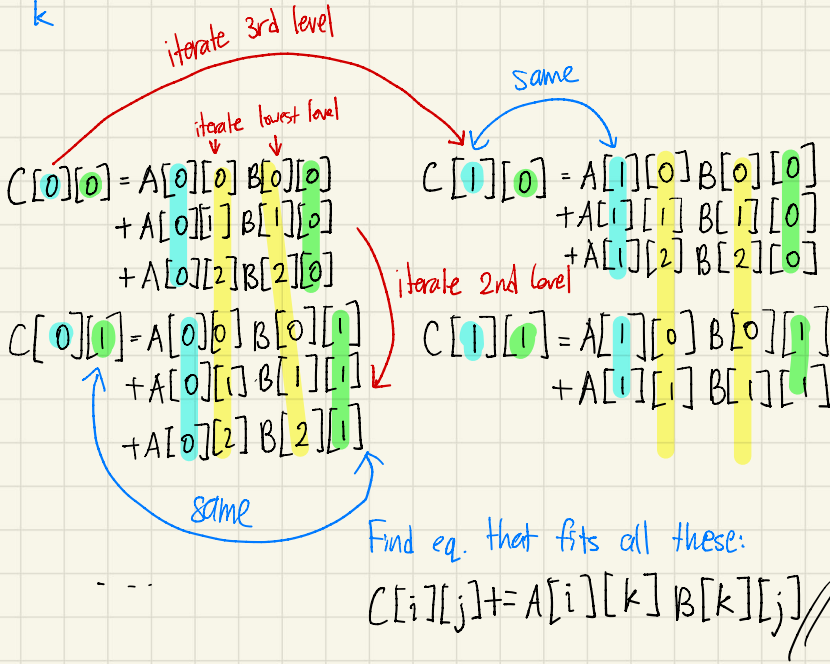 k
iterate 3rd level
same
iterate lowest level
C[0][0] = A[0][0] B[0][0]
+ A[0][1] B[1][0]
+ A[0][2] B[2][0]
C[1][0] = A[1][0] B[0][0]
+ A[1][1] B[1][0]
+ A[1][2] B[2][0]
iterate 2nd level
C[0][1] = A[0][0] B[0][1]
+ A[0][1] B[1][1]
+ A[0][2] B[2][1]
C[1][1] = A[1][0] B[0][1]
+ A[1][1] B[1][1]
same
Find eq. that fits all these:
- - - -
C[i][j] += A[i][k] B[k][j] //